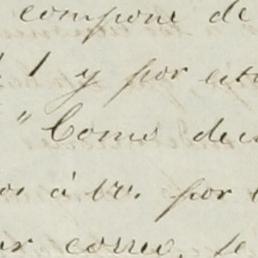 compone de
1 y por est
"Como deci
os á V. por
ar correo, se